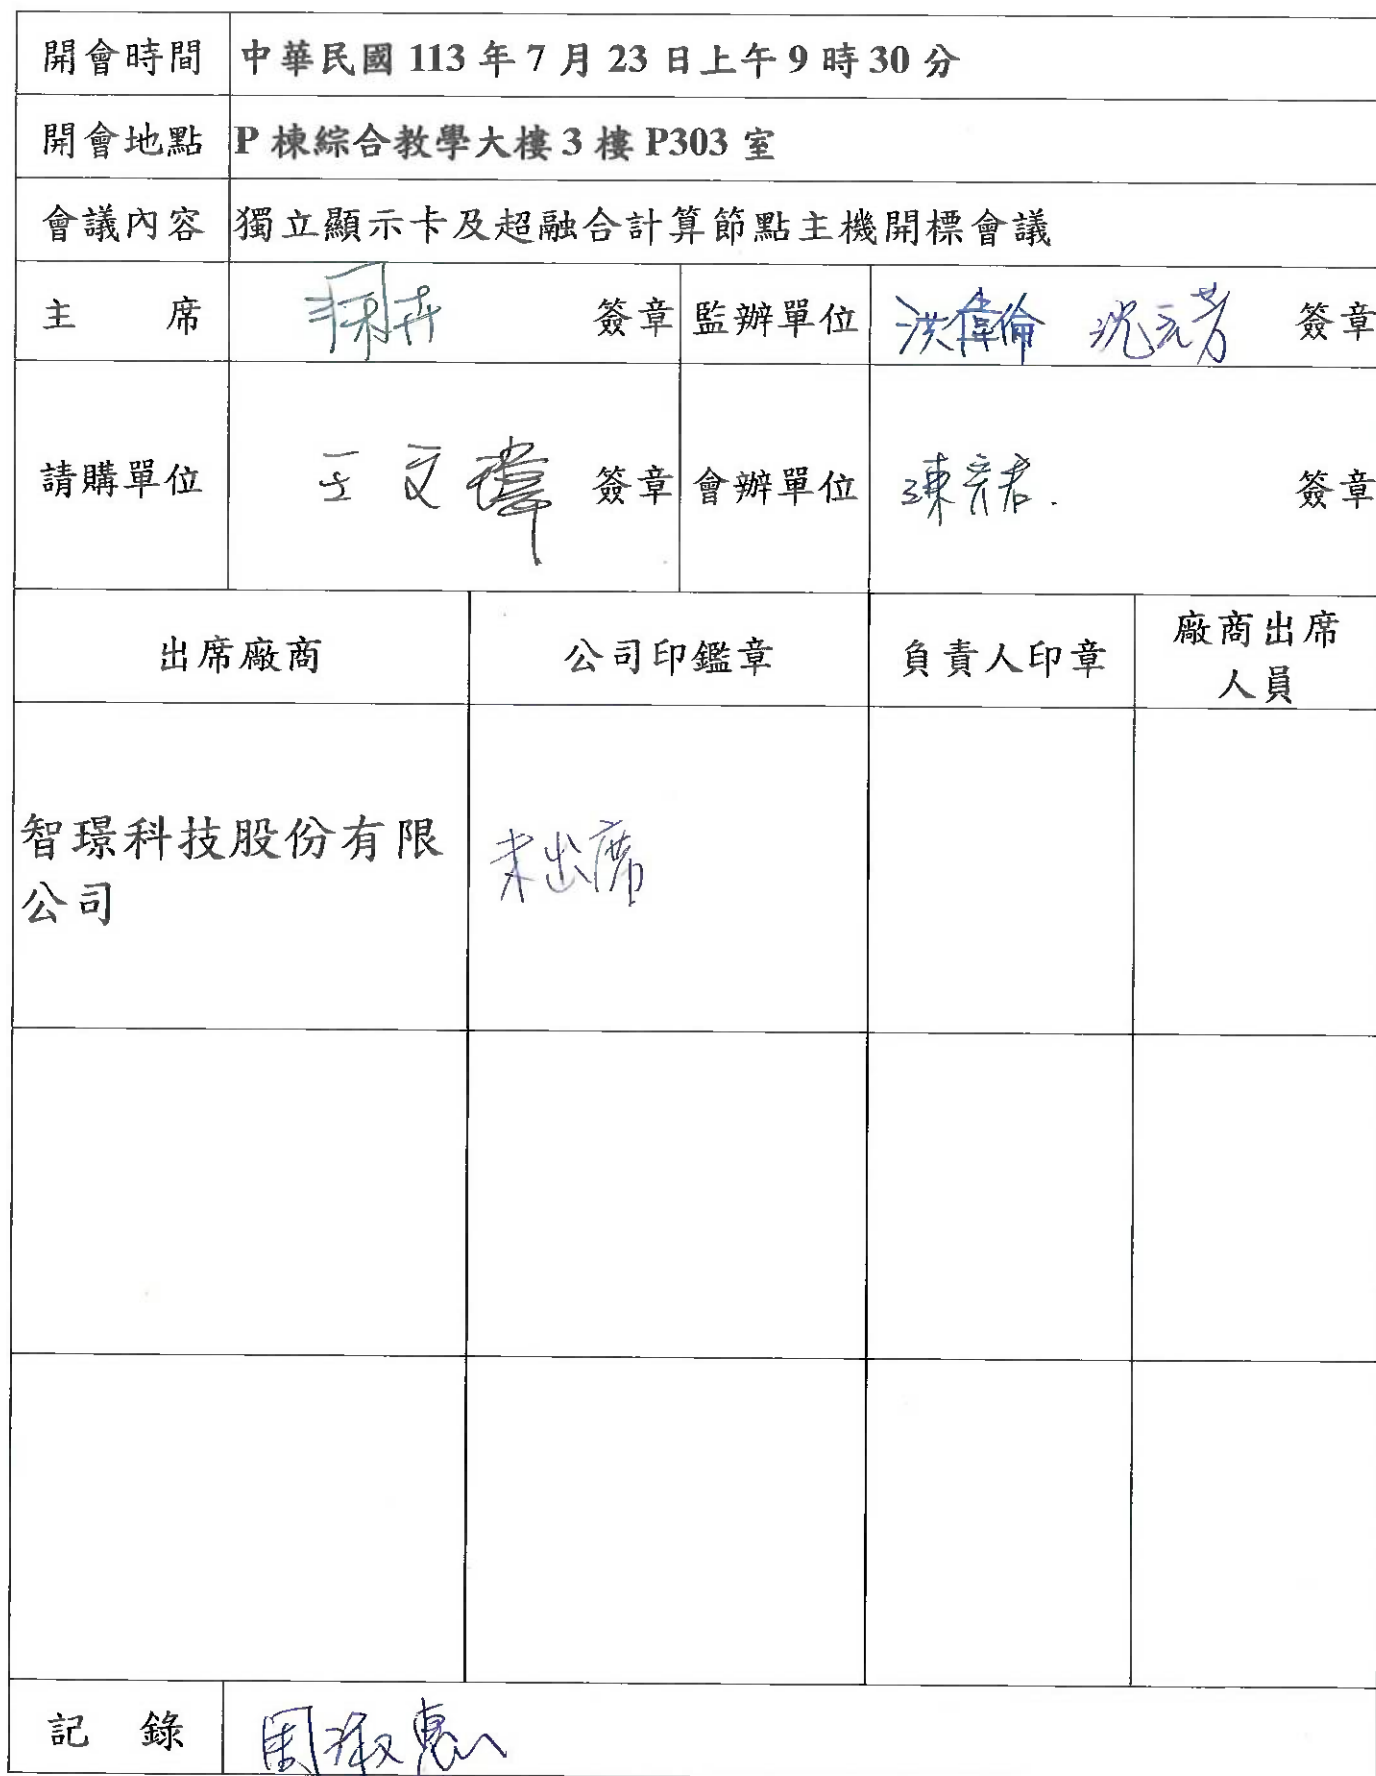 開會時間 中華民國 113 年 7 月 23 日上午 9 時 30 分
開會地點 P 棟綜合教學大樓 3 樓 P303 室
會議內容 獨立顯示卡及超融合計算節點主機開標會議
主 席 簽章 監辦單位 洪偉倫 沈元芳 簽章
請購單位 王文瑋 簽章 會辦單位 陳彥君. 簽章
出席廠商 公司印鑑章 負責人印章 廠商出席
人員
智璟科技股份有限
公司
未出席
記 錄 周淑惠